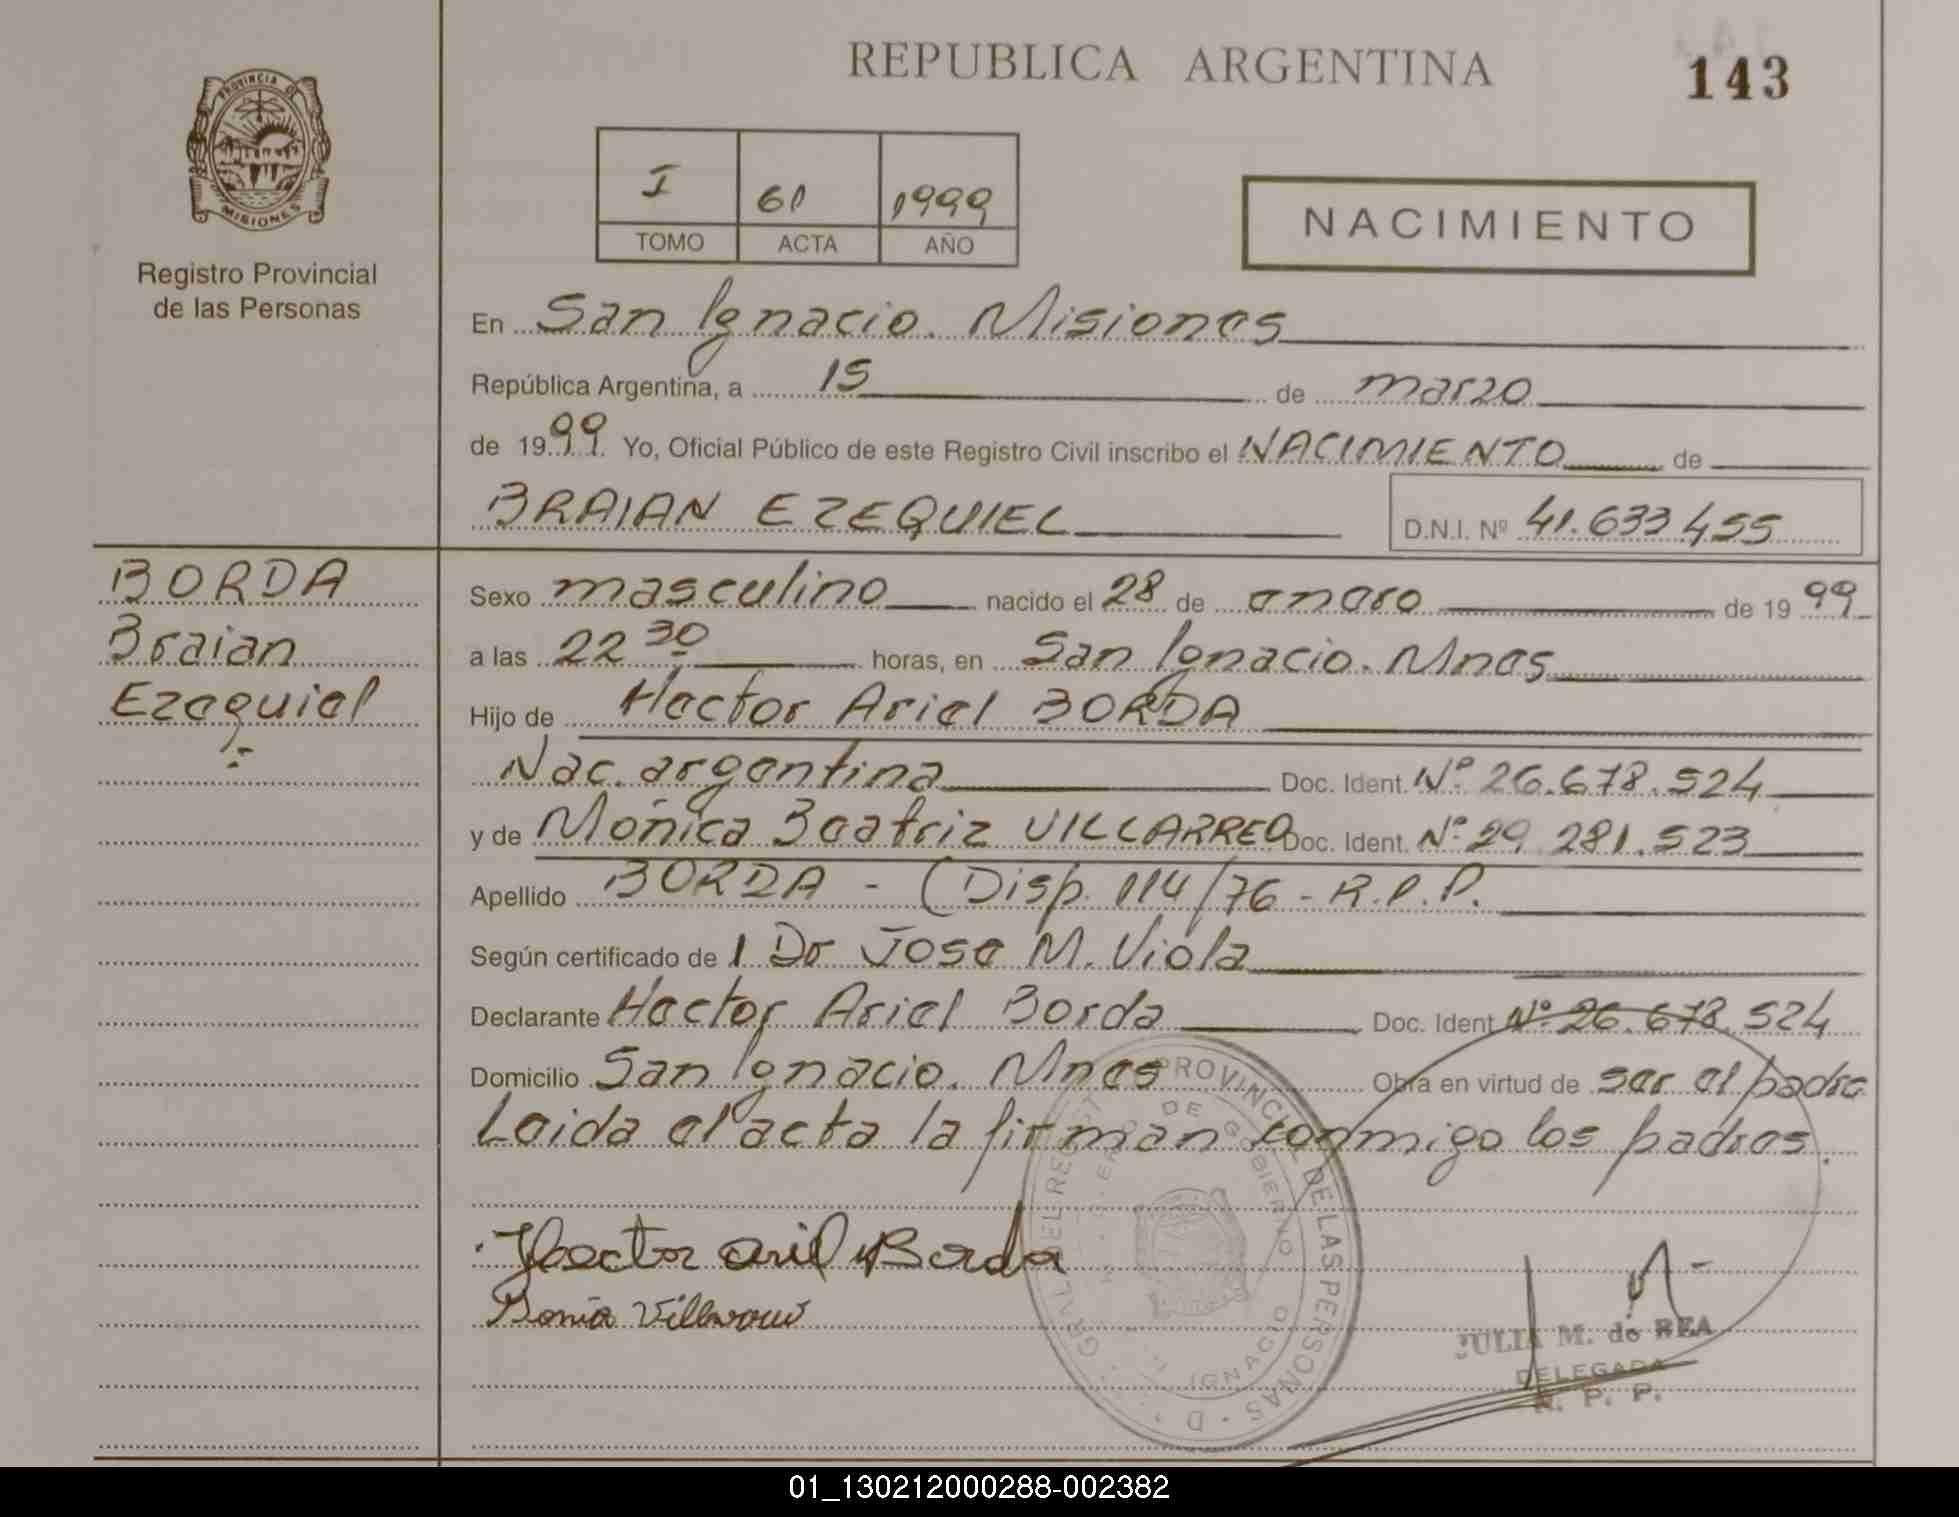 REPUBLICA ARGENTINA
143
PROVINCIA DE
MISIONES
Registro Provincial
de las Personas
I 61 1999
TOMO ACTA AÑO
NACIMIENTO
En San Ignacio. Misiones
República Argentina, a 15 de marzo
de 1999. Yo, Oficial Público de este Registro Civil inscribo el NACIMIENTO de
BRAIAN EZEQUIEL D.N.I. Nº 41.633.455
BORDA
Braian
Ezequiel
Sexo masculino nacido el 28 de enero de 1999
a las 22 30 horas, en San Ignacio. Mnes
Hijo de Hector Ariel BORDA
Nac. argentina Doc. Ident. Nº 26.678.524
y de Mónica Beatriz VILLARREO Doc. Ident. Nº 29.281.523
Apellido BORDA - (Disp. 114/76 - R.P.P.
Según certificado de 1 Dr Jose M. Viola
Declarante Hector Ariel Borda Doc. Ident Nº 26.678.524
Domicilio San Ignacio. Mnes Obra en virtud de ser el padre
Leida el acta la firman conmigo los padres.
Hector Ariel Borda
Villarreal
PROVINCIAL DE LAS PERSONAS
DE GOBIERNO
IGNACIO
JULIA M. de REA
DELEGADA
R. P. P.
01_130212000288-002382